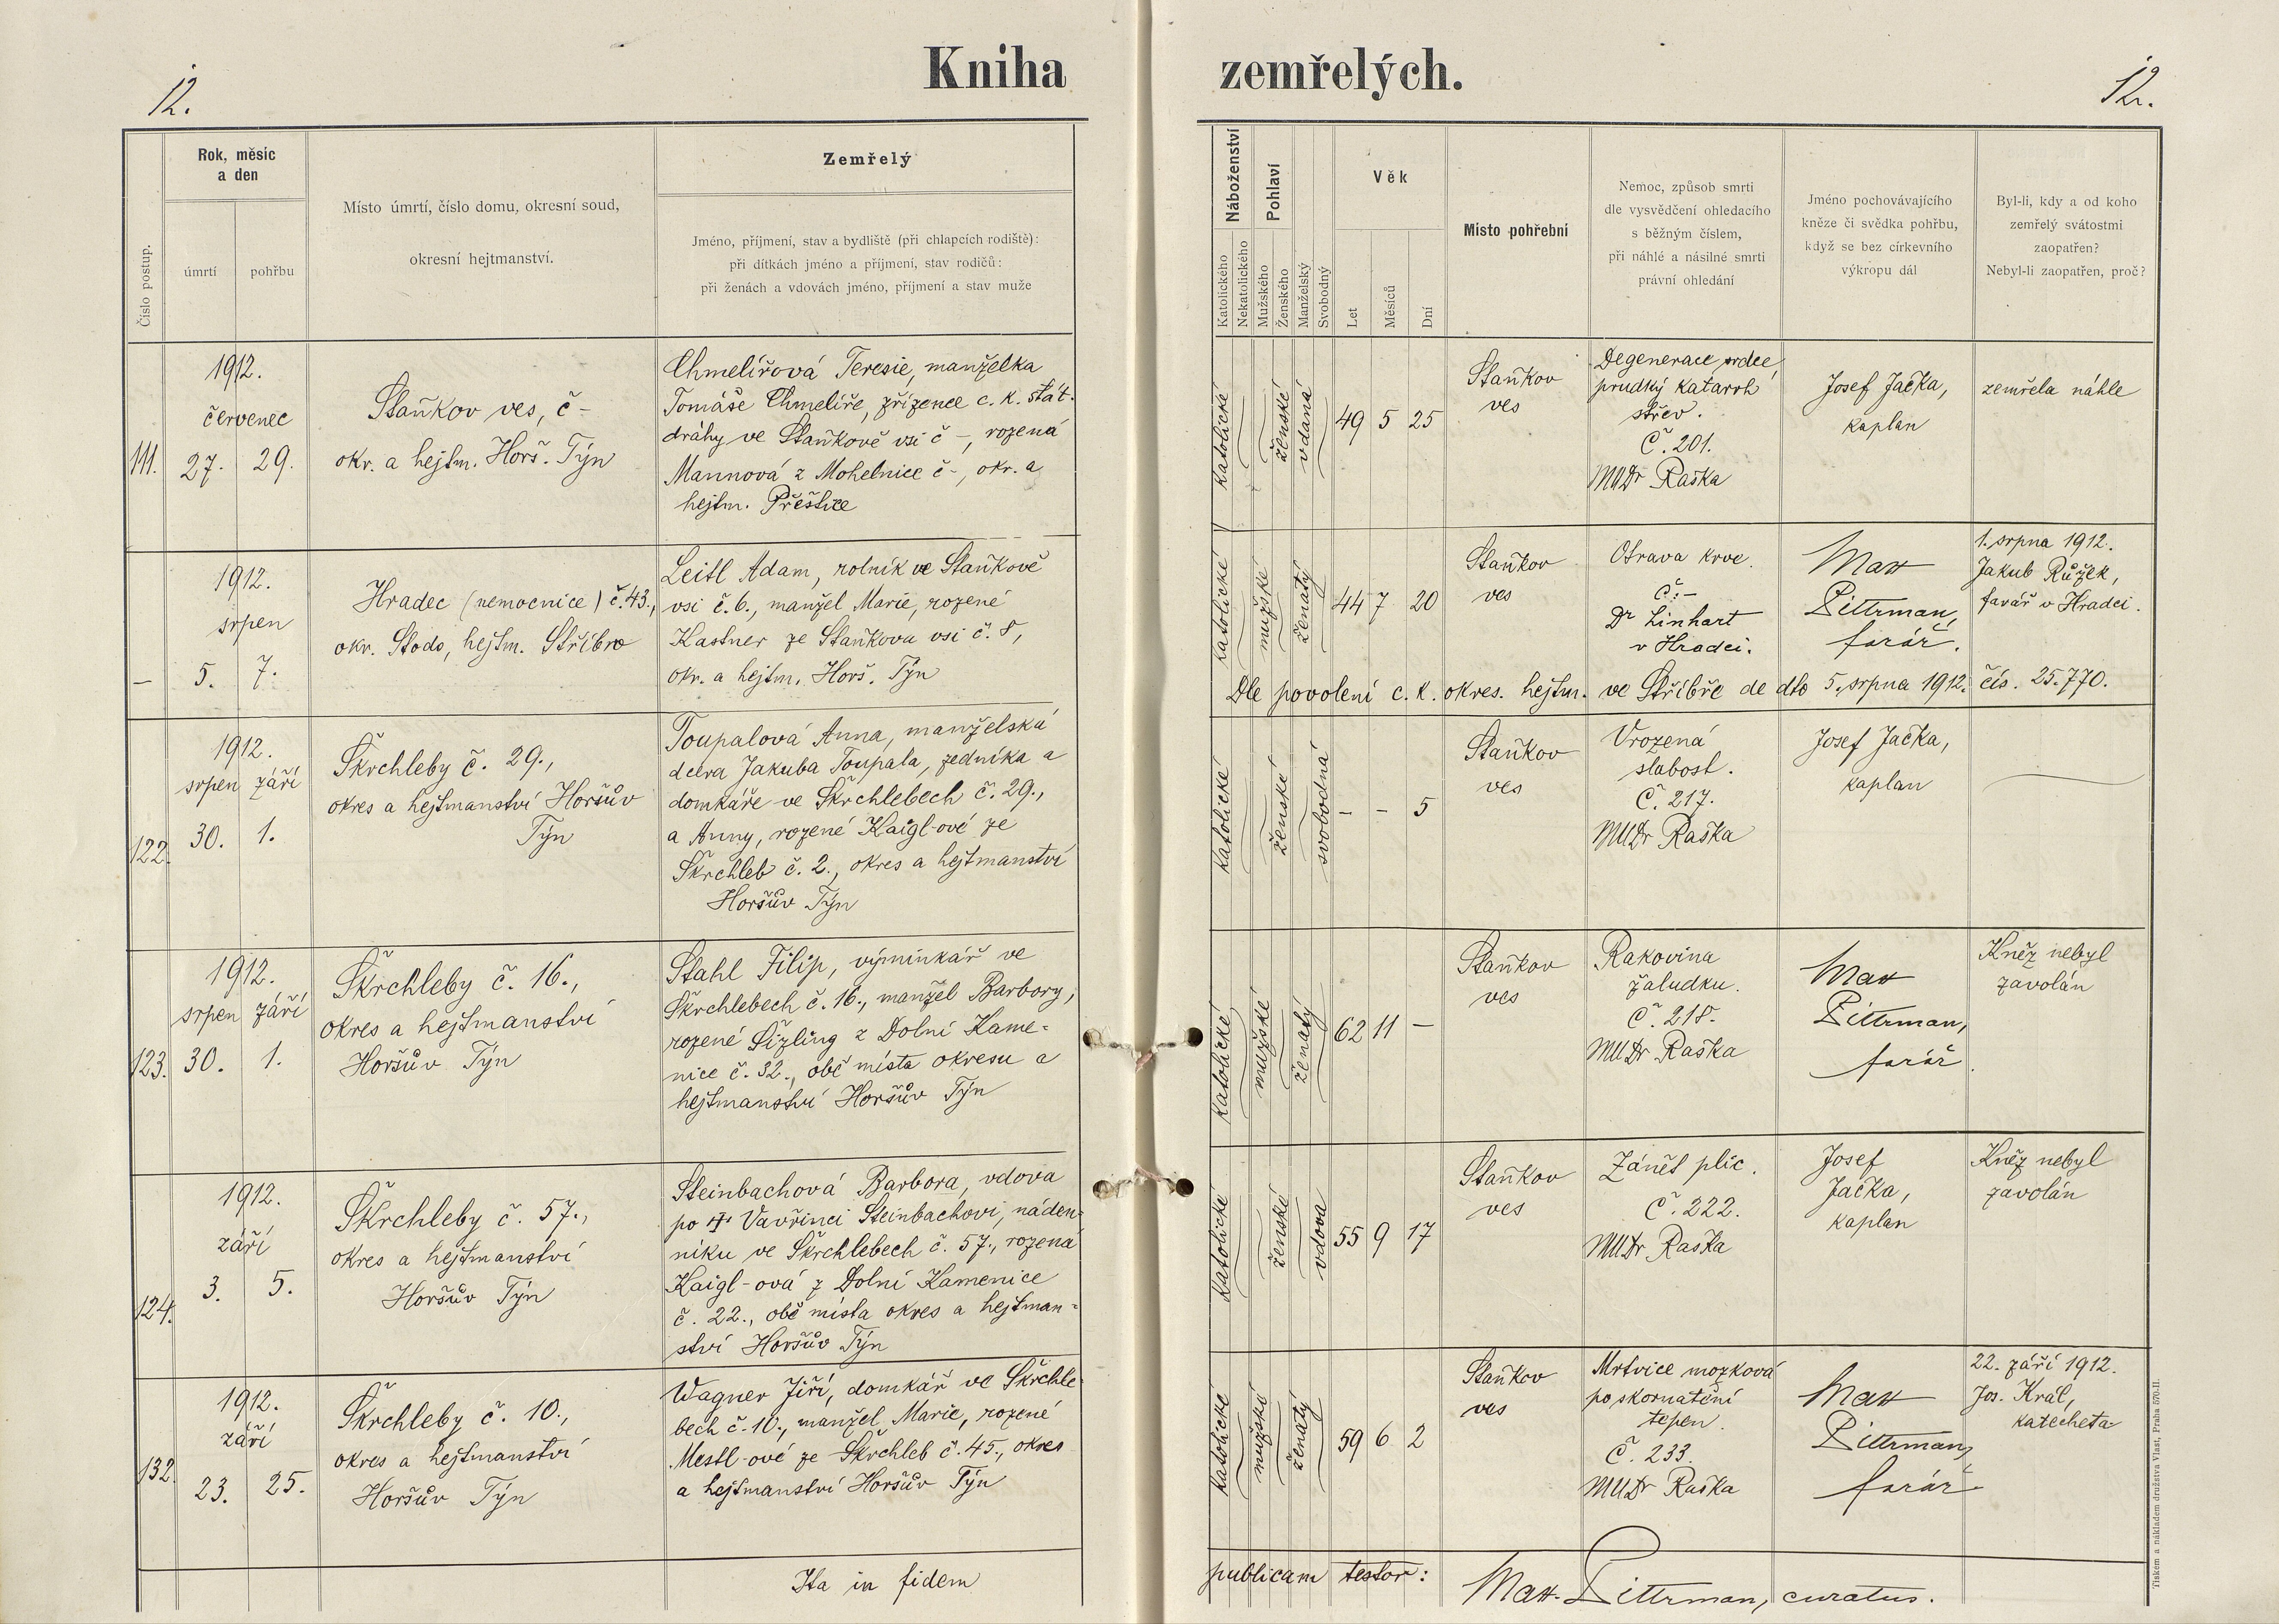 12.
Kniha zemřelých.
12.
Číslo postup.
Rok, měsíc
a den
úmrtí
pohřbu
Místo úmrtí, číslo domu, okresní soud,
okresní hejtmanství.
Zemřelý
Jméno, příjmení, stav a bydliště (při chlapcích rodiště):
při dítkách jméno a příjmení, stav rodičů:
při ženách a vdovách jméno, příjmení a stav muže
Náboženství
Katolického
Nekatolického
Pohlaví
Mužského
Ženského
Manželský
Svobodný
Věk
Let
Měsíců
Dní
Místo pohřební
Nemoc, způsob smrti
dle vysvědčení ohledacího
s běžným číslem,
při náhlé a násilné smrti
právní ohledání
Jméno pochovávajícího
kněze či svědka pohřbu,
když se bez církevního
výkropu dál
Byl-li, kdy a od koho
zemřelý svátostmi
zaopatřen?
Nebyl-li zaopatřen, proč?
111.
1912.
červenec
27. 29.
Staňkov ves, č –
okr. a hejtm. Horš. Týn
Chmelířová Teresie, manželka
Tomáše Chmelíře, zřízence c. k. stát.
dráhy ve Staňkově vsi č –, rozená
Mannová z Mohelnice č –, okr. a
hejtm. Přeštice
katolické
ženské
vdaná
49 5 25
Staňkov
ves
Degenerace srdce,
prudký katarrh
střev.
Č. 201.
MUDr Raška
Josef Jačka,
kaplan
zemřela náhle
–
1912.
srpen
5. 7.
Hradec (nemocnice) č. 43.,
okr. Stodo, hejtm. Stříbro
Leitl Adam, rolník ve Staňkově
vsi č. 6., manžel Marie, rozené
Kastner ze Staňkova vsi č. 8,
okr. a hejtm. Horš. Týn
katolické
mužské
ženatý
44 7 20
Staňkov
ves
Otrava krve.
Č. –
Dr Linhart
v Hradci.
Mat
Pittrman,
farář.
1. srpna 1912.
Jakub Růžek,
farář v Hradci.
Dle povolení c. k. okres. hejtm. ve Stříbře de dto 5. srpna 1912. čís. 25.770.
122.
1912.
srpen září
30. 1.
Škrchleby č. 29.,
okres a hejtmanství Horšův
Týn
Toupalová Anna, manželská
dcera Jakuba Toupala, zedníka a
domkáře ve Škrchlebech č. 29.,
a Anny, rozené Kaigl-ové ze
Škrchleb č. 2., okres a hejtmanství
Horšův Týn
katolické
ženské
svobodná
– – 5
Staňkov
ves
Vrozená
slabost.
Č. 217.
MUDr Raška
Josef Jačka,
kaplan
123.
1912.
srpen září
30. 1.
Škrchleby č. 16.,
okres a hejtmanství
Horšův Týn
Stahl Filip, výminkář ve
Škrchlebech č. 16., manžel Barbory,
rozené Šizling z Dolní Kame-
nice č. 32., obě místa okresu a
hejtmanství Horšův Týn
katolické
mužské
ženatý
62 11 –
Staňkov
ves
Rakovina
žaludku.
Č. 218.
MUDr Raška
Mat
Pittrman,
farář.
Kněz nebyl
zavolán
124.
1912.
září
3. 5.
Škrchleby č. 57.,
okres a hejtmanství
Horšův Týn
Steinbachová Barbora, vdova
po † Vavřinci Steinbachovi, náden-
níku ve Škrchlebech č. 57., rozená
Kaigl-ová z Dolní Kamenice
č. 22., obě místa okres a hejtman-
ství Horšův Týn
katolické
ženské
vdova
55 9 17
Staňkov
ves
Zánět plic.
Č. 222.
MUDr Raška
Josef
Jačka,
kaplan
Kněz nebyl
zavolán
132.
1912.
září
23. 25.
Škrchleby č. 10.,
okres a hejtmanství
Horšův Týn
Wagner Jiří, domkář ve Škrchle-
bech č. 10., manžel Marie, rozené
Mestl-ové ze Škrchleb č. 45., okres
a hejtmanství Horšův Týn
katolické
mužské
ženatý
59 6 2
Staňkov
ves
Mrtvice mozková
po skornatění
tepen.
Č. 233.
MUDr Raška
Mat
Pittrman,
farář
22. září 1912.
Jos. Král,
katecheta
Ita in fidem publicam testor:
Mat. Pittrman, curatus.
Tiskem a nákladem družstva Vlast, Praha 570-II.